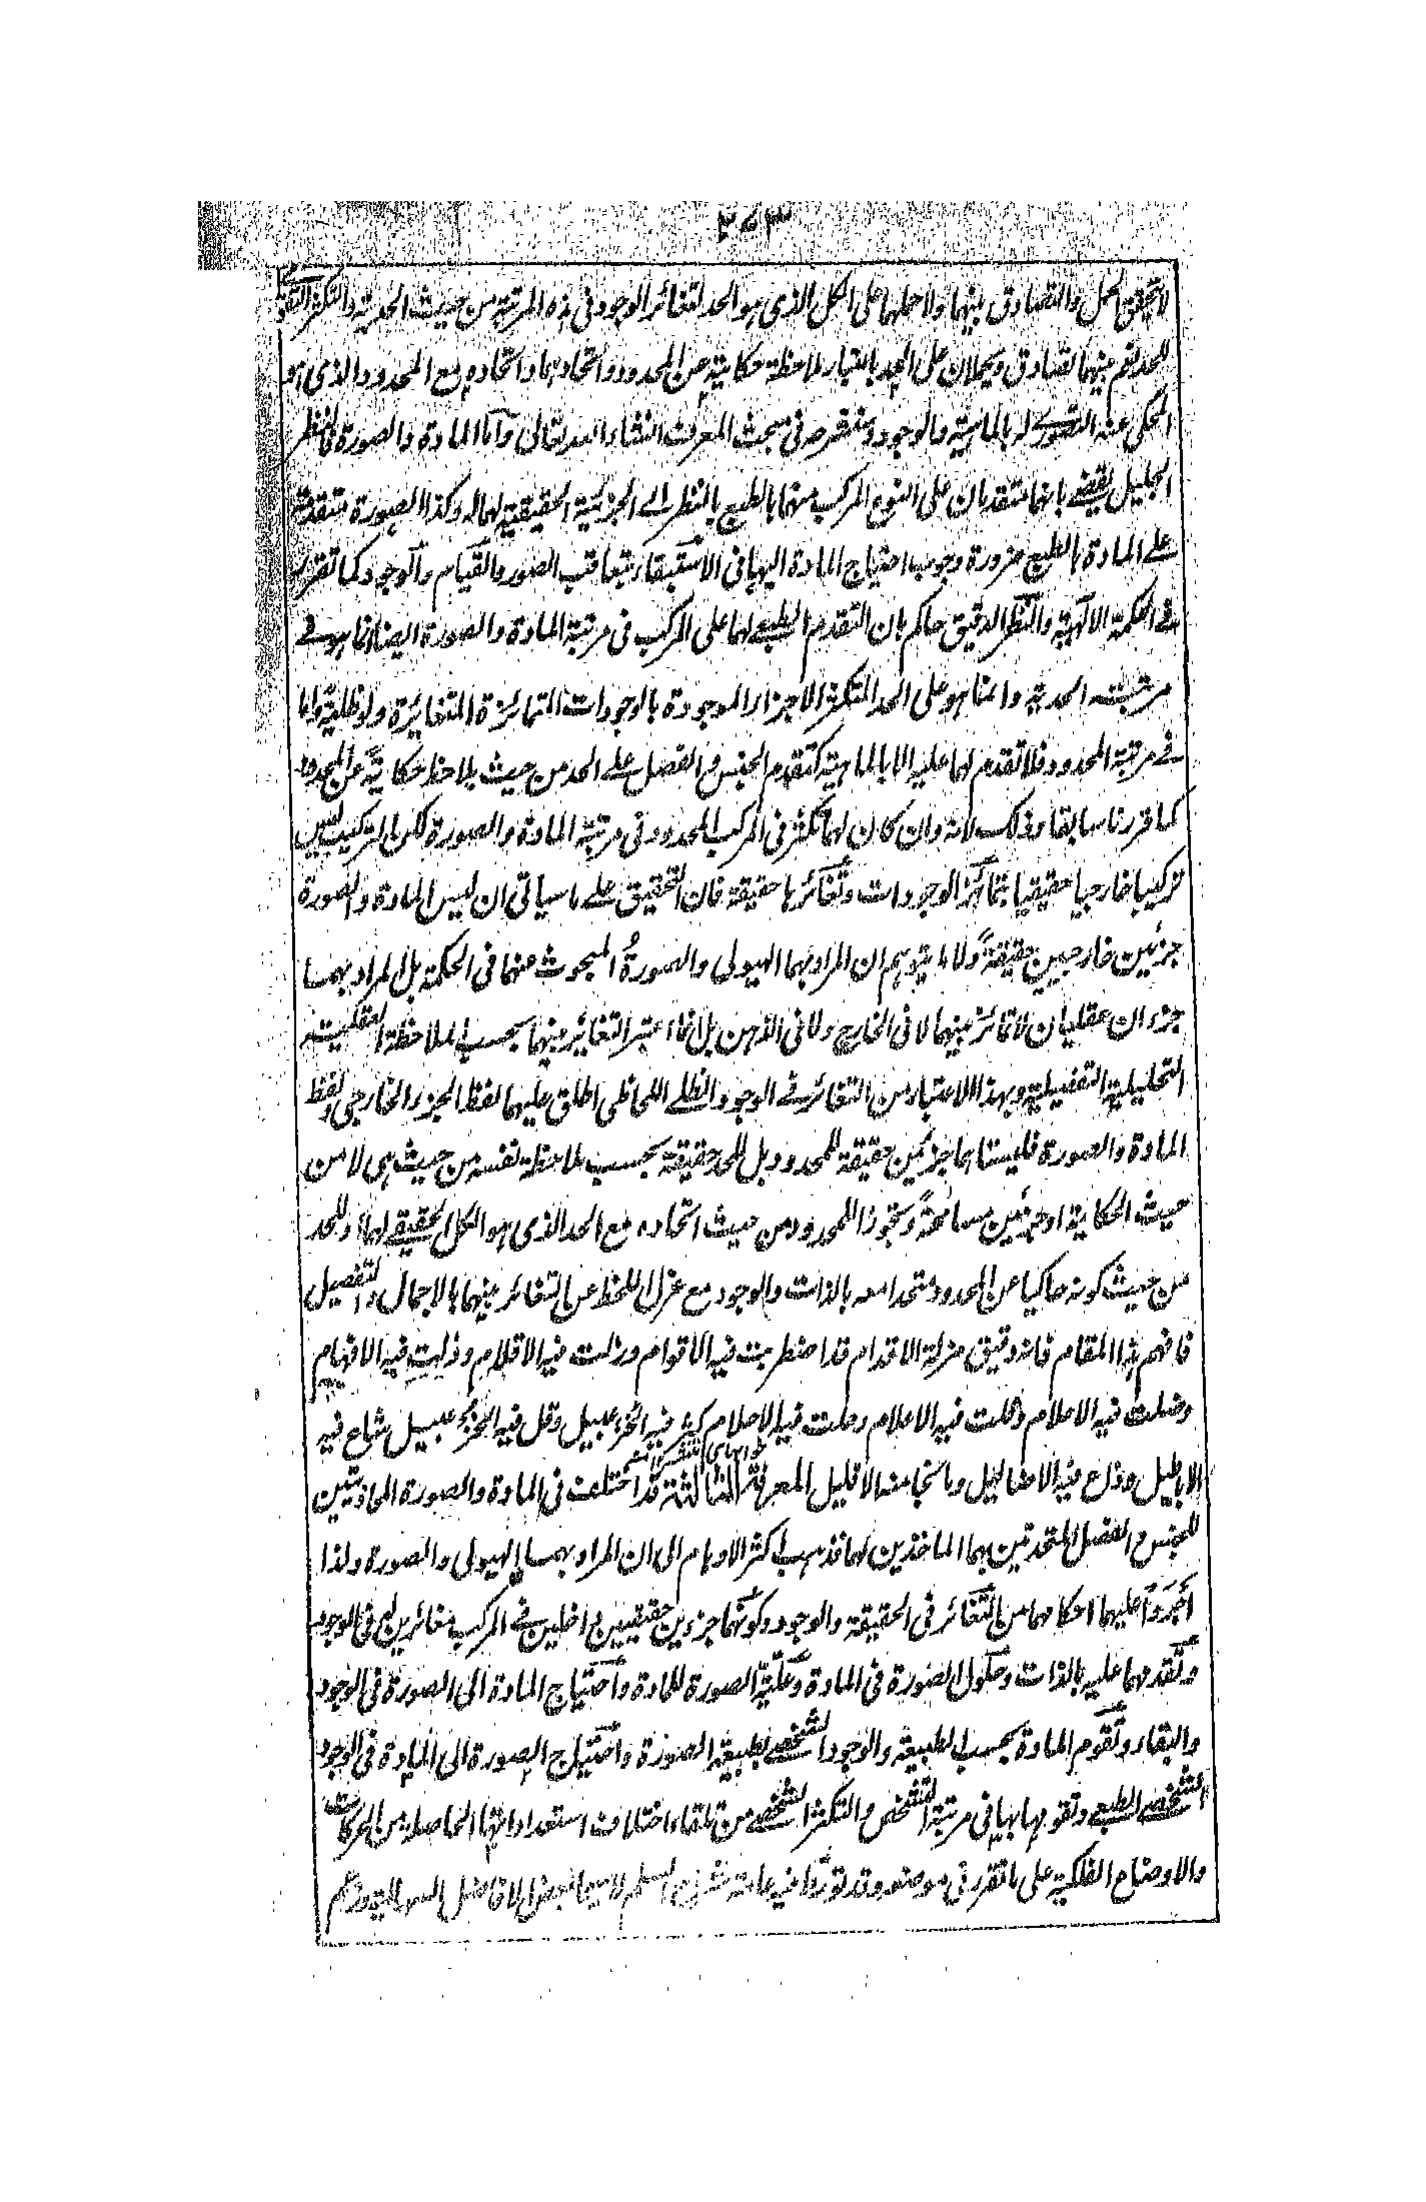 ٢٧٣
لا تحقق الحمل والتصادق بينهما ولا حملهما على الكل الذى هو الحد لتغائر الوجود فى هذه المرتبة من حيث الحدية والتكثر
للحد نعم بينهما تصادق ويحملان على الحد باعتبار ملاحظة حكايته عن المحدود واتحادهما واتحاده مع المحدود الذى هو
المحكى عنه التصورى له بالماهية والوجود وستقره فى مبحث المعرف انشاء الله تعالى وأما المادة والصورة فالنظر
الجليل يقضى بانهما متقدمان على النوع المركب منهما بالطبع بالنظر الى الجزئية الحقيقية لهما له وكذا الصورة متقدمة
على المادة بالطبع ضرورة وجوب احتياج المادة اليها فى الاستبقاء بتعاقب الصور والقيام والوجود كما تقرر
فى الحكمة الالٰهية والنظر الدقيق حاكم بان التقدم الطبعى لهما على المركب فى مرتبة المادة والصورة ايضا انما هو فى
مرتبته الحدية وانما هو على الحد المتكثر الاجزاء الموجودة بالوجودات المتمائزة المتغائرة ولو ظلية واما
فى مرتبة المحدود فلا تقدم لهما عليه الا بالماهية كتقدم الجنس والفصل على الحد من حيث يلاحظ حكاية عن المحدود
كما قررنا سابقا وذلك لانه وان كان لهما تكثر فى المركب المحدود فى مرتبة المادة والصورة لكن التركيب ليس
تركيبا خارجيا حقيقيا بتمائز الوجودات وتغائرها حقيقة فان التحقيق على ما سياتى ان ليس المادة والصورة
جزئين خارجيين حقيقةً ولا ما يتوهم ان المراد بهما الهيولى والصورةُ المبحوث عنهما فى الحكمة بل المراد بهما
جزءان عقليان لا تمائز بينهما لا فى الخارج ولا فى الذهن بل انما اعتبر التغائر بينهما بحسب الملاحظة العقلية
التحليلية التفصيلية وبهذا الاعتبار من التغائر فى الوجود الظلى اللحاظى اطلق عليهما لفظ الجزء الخارجى ولفظ
المادة والصورة فليستا هما جزئين حقيقة للمحدود بل للحد حقيقة بحسب ملاحظة نفسه من حيث هى لا من
حيث الحكاية او جزئين مسامحةً وتجوزا للمحدود من حيث اتحاده مع الحد الذى هو الكل الحقيقى لهما وللحد
من حيث كونه حاكيا عن المحدود متحدا معه بالذات والوجود مع عزل اللحظ عن التغائر بينهما بالاجمال والتفصيل
فافهم هذا المقام فانه دقيق مزلة الاقدام قد اضطربت فيه الاقوام وزلت فيه الاقلام وذلت فيه الافهام
وضلت فيه الاعلام وكلت فيه الاعلام وحلت فيه الاحلام كثر فيه الخزعبيل وقل فيه الخزعبيل شاع فيه
الاباطيل وذاع فيه الاضاليل وما نجا منه الا قليل المعرفة الثالثة قد اختلف فى المادة والصورة المحاذيتين
للجنس والفصل المتحدتين بهما الماخذين لهما فذهب اكثر الاوهام الى ان المراد بهما الهيولى والصورة ولذا
اَجْرَوْا عليهما احكامهما من التغائر فى الحقيقة والوجود وكونهما جزءين حقيقيين داخلين فى المركب مغائرين له فى الوجود
وتقدمهما عليه بالذات وحلول الصورة فى المادة وعلية الصورة للمادة واحتياج المادة الى الصورة فى الوجود
والبقاء وتقوم المادة بحسب الطبيعة والوجود الشخصى بطبيعة الصورة واحتياج الصورة الى المادة فى الوجود
الشخصى الطبعى وتقومها بها فى مرتبة التشخص والتكثر الشخصى من تلقاء اختلاف استعداداتها الحاصلة من الحركات
والاوضاع الفلكية على ما تقرر فى موضعه وقد تورط فيه عامة شراح السلم لا سيما بعض الافاضل